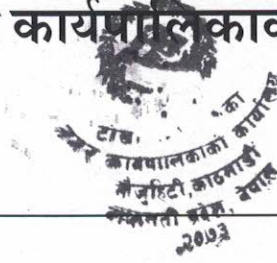 कार्यपालिकाव
का
नगर कार्यपालिकाको कार्यालय
मैजुहिटी, काठमाडौं
बागमती प्रदेश, नेपाल
२०७३